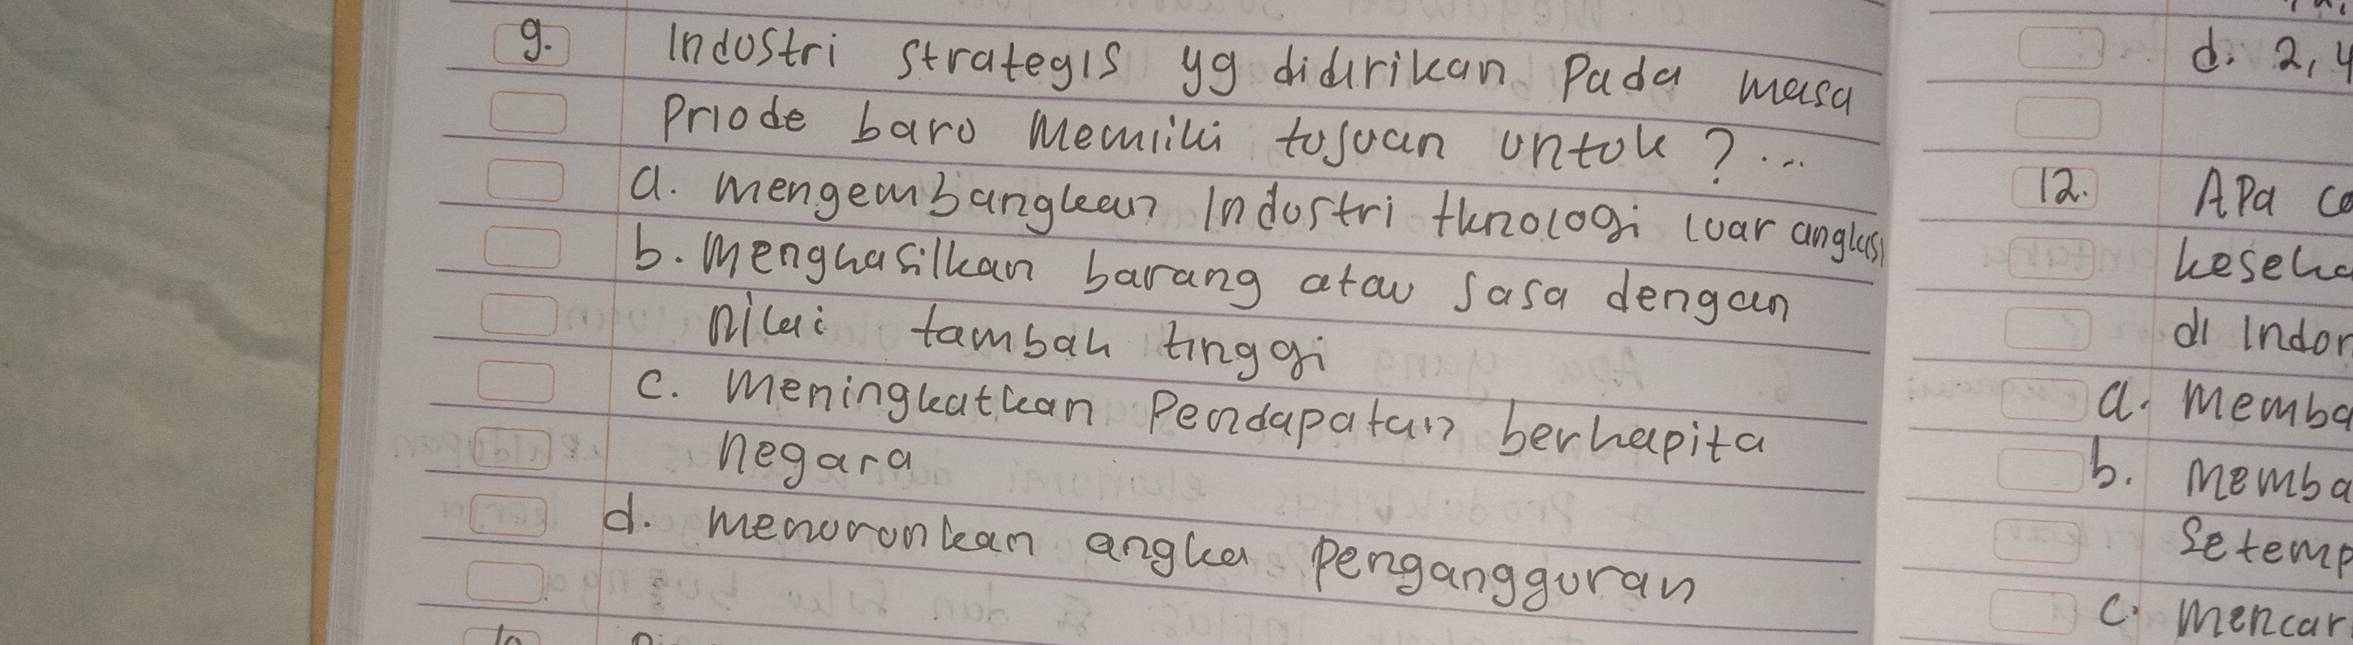 9. Industri strategis yg didirikan pada masa
priode baro memiliki tujuan untuk ? ...
a. mengembangkan industri tknologi luar angkasa
b. menghasilkan barang atau jasa dengan
nilai tambah tinggi
c. meningkatkan pendapatan berkapita
negara
d. menurunkan angka pengangguran
10
d. 2,4
12. Apa
di Indon
a. memba
b. memba
setemp
c. mencar